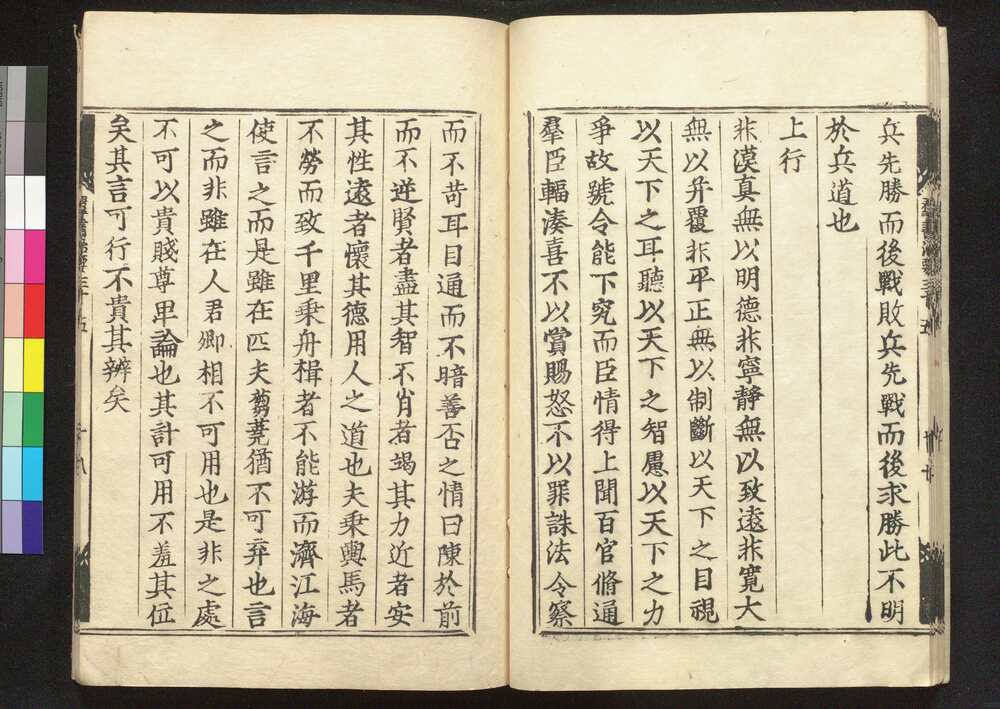 兵先勝而後戰敗兵先戰而後求勝此不明
於兵道也
上行
非漠真無以明德非寧静無以致遠非寬大
無以并覆非平正無以制斷以天下之目視
以天下之耳聽以天下之智慮以天下之力
爭故號令能下究而臣情得上聞百官脩通
羣臣輻湊喜不以賞賜怒不以罪誅法令察
而不苛耳目通而不暗善否之情日陳於前
而不逆賢者盡其智不肖者竭其力近者安
其性遠者懷其德用人之道也夫乗輿馬者
不勞而致千里乗舟楫者不能游而濟江海
使言之而是雖在匹夫芻蕘猶不可弃也言
之而非雖在人君卿相不可用也是非之處
不可以貴賤尊卑論也其計可用不羞其位
矣其言可行不貴其辨矣